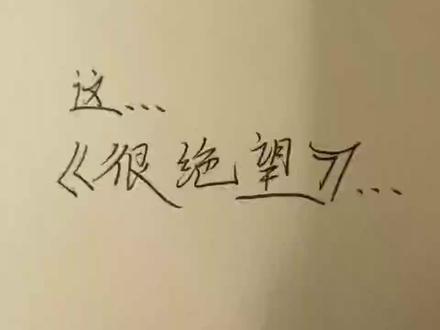 这...
《很绝望》...